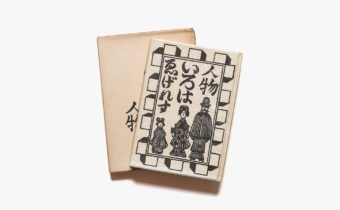 人物
いろは
ゑげれす
人物